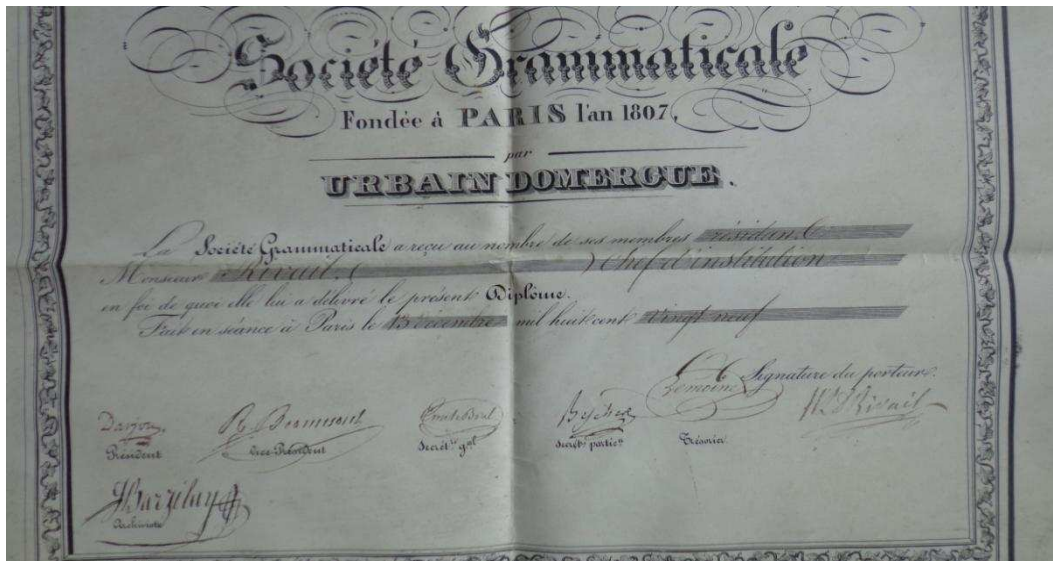 Société Grammaticale
Fondée à PARIS l'an 1807,
par
URBAIN DOMERGUE.
La Société Grammaticale a reçu au nombre de ses membres résidant
Monsieur Rivail, Chef d'institution
en foi de quoi elle lui a délivré le présent Diplôme.
Fait en séance à Paris le 13 décembre mil huit cent vingt neuf
Signature du porteur.
Lemoine
Président
Vice-Président
Secrét.re g.al
Secrét. partic.r
Trésorier
Rivail
Archiviste